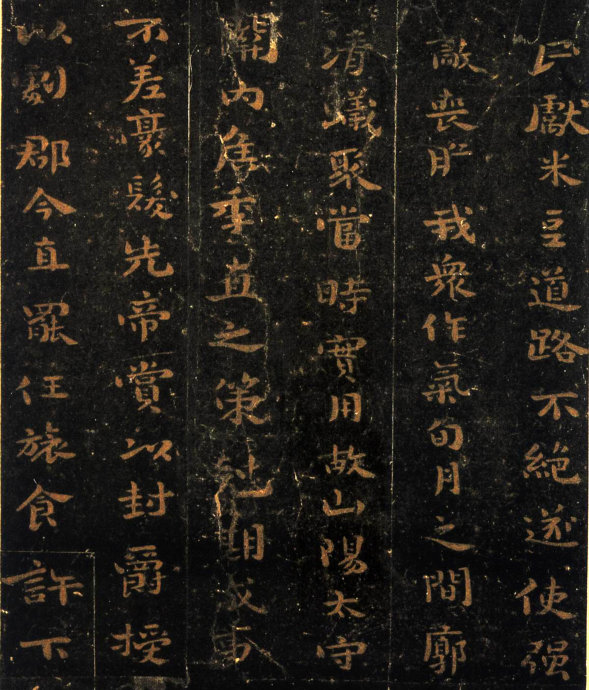 民獻米豆道路不絶遂使强
敵喪膽我衆作氣旬月之間廓
清蟻聚當時實用故山陽太守
關內侯季直之策剋期成事
不差豪髮先帝賞以封爵授
以劇郡今直罷任旅食許下